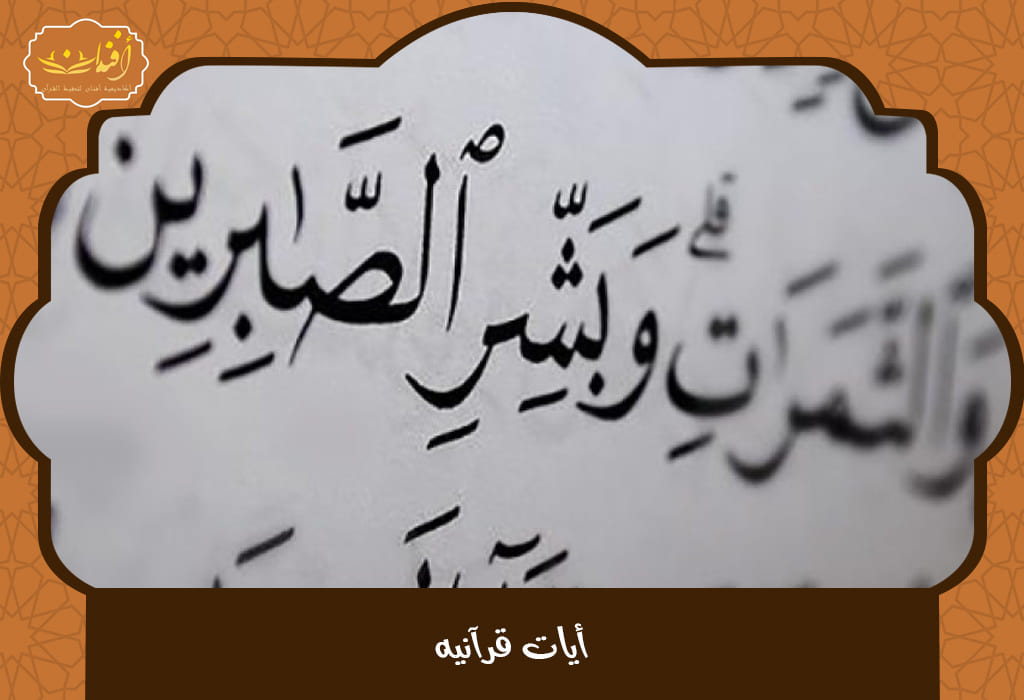 أفنان
أكاديمية أفنان لتحفيظ القرآن
وَٱلثَّمَرَٰتِۗ وَبَشِّرِ ٱلصَّٰبِرِينَ
أيات قرآنيه